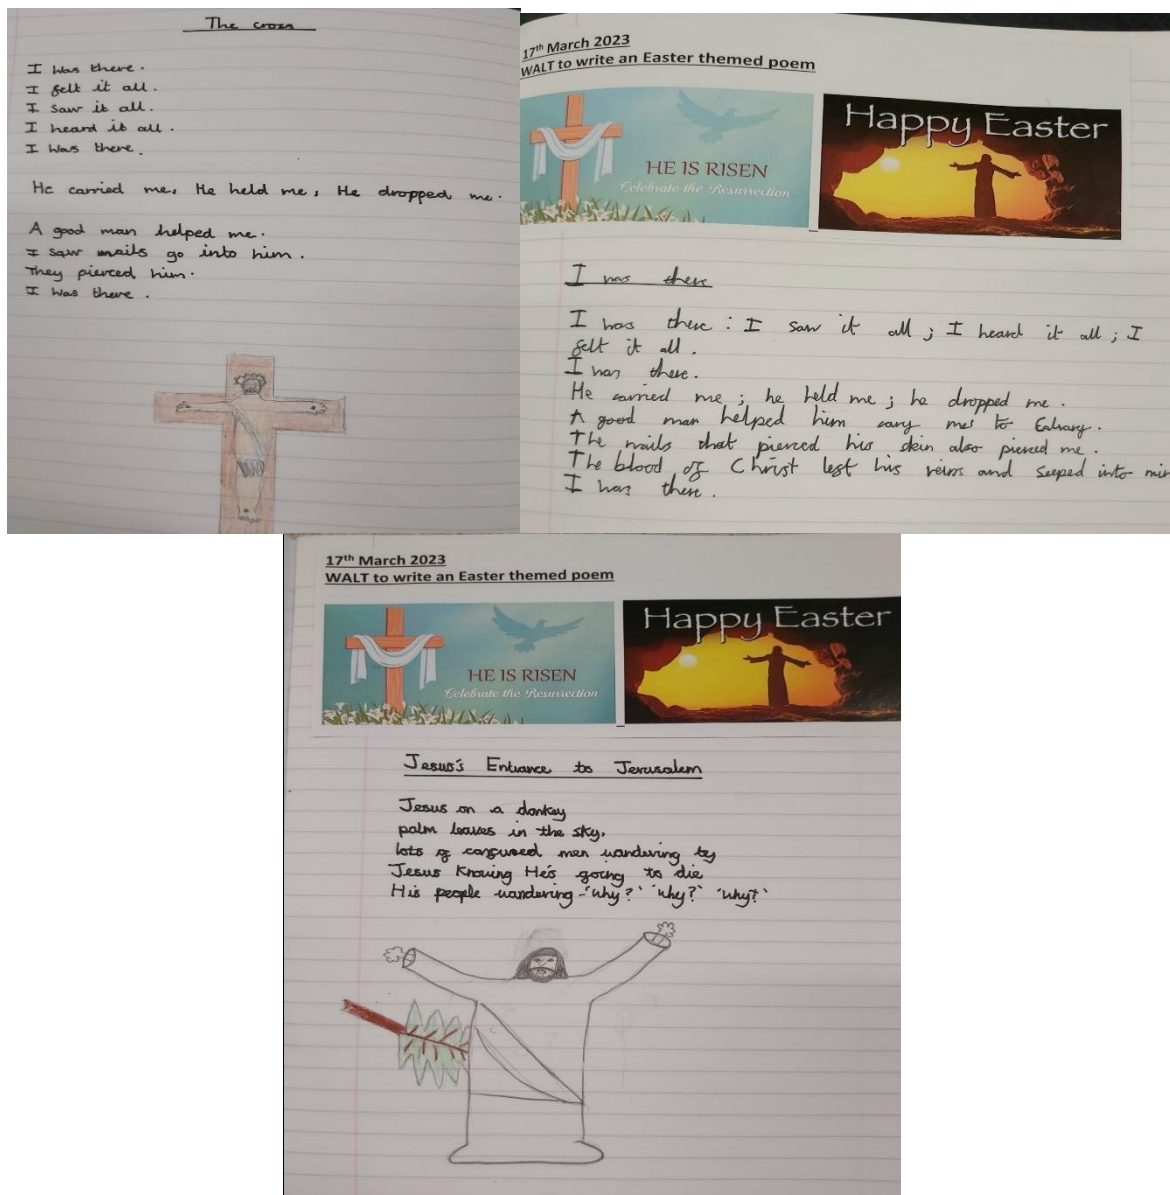 The cross
I was there.
I felt it all.
I saw it all.
I heard it all.
I was there.
He carried me, He held me, He dropped me.
A good man helped me.
I saw nails go into him.
They pierced him.
I was there.
17th March 2023
WALT to write an Easter themed poem
HE IS RISEN
Celebrate the Resurrection
Happy Easter
I was there
I was there: I saw it all; I heard it all; I
felt it all.
I was there.
He carried me; he held me; he dropped me.
A good man helped him carry me to Calvary.
The nails that pierced his skin also pierced me.
The blood of Christ left his veins and seeped into
I was there.
17th March 2023
WALT to write an Easter themed poem
HE IS RISEN
Celebrate the Resurrection
Happy Easter
Jesus's Entrance to Jerusalem
Jesus on a donkey
palm leaves in the sky,
lots of confused men wandering by
Jesus Knowing He's going to die
His people wandering-'why?' 'why?' 'why?'